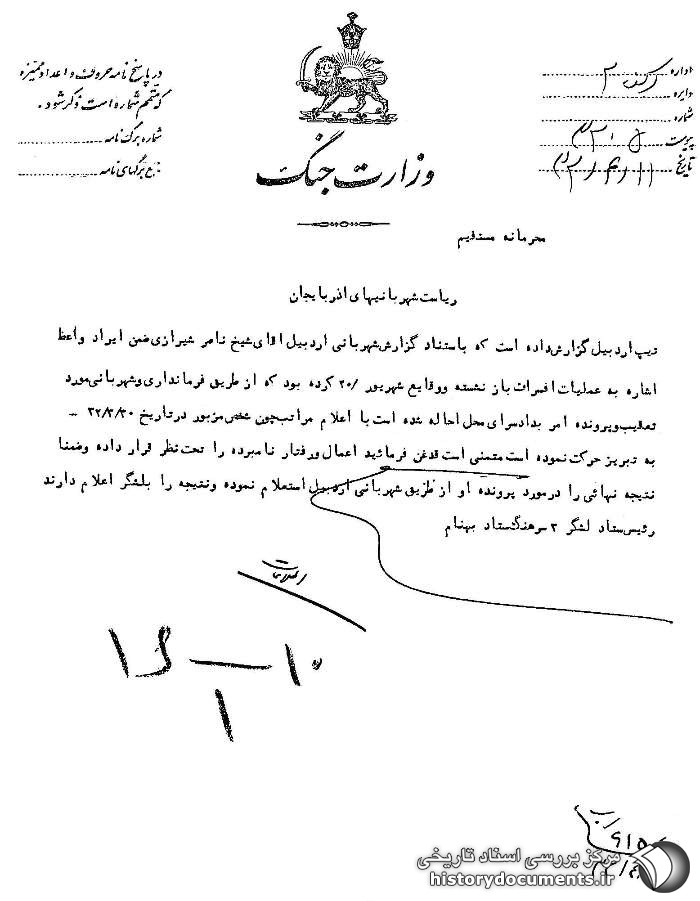 در پاسخ نامه حروف و اعداد ممیزه
که متمم شماره است ذکر شود.
شماره برگ نامه
جمع برگهای نامه
وزارت جنگ
اداره رکن ۲
دایره
شماره
پیوست
تاریخ
محرمانه مستقیم
ریاست شهربانیهای اذربایجان
تیپ اردبیل گزارش داده است که باستناد گزارش شهربانی اردبیل اقای شیخ ناصر شیرازی ضمن ایراد واعظ
اشاره به عملیات افسران باز نشسته ووقایع شهریور /۲۰ کرده بود که از طریق فرمانداری وشهربانی مورد
تعقیب وپرونده امر بدادسرای محل احاله شده است با اعلام مراتب چون شخص مزبور در تاریخ ۳۲/۳/۳۰ -
به تبریز حرکت نموده است متمنی است قدغن فرمائید اعمال ورفتار نامبرده را تحت نظر قرار داده وضمنا
نتیجه نهائی را در مورد پرونده او از طریق شهربانی اردبیل استعلام نموده ونتیجه را بلشگر اعلام دارند
رئیس ستاد لشگر ۲ سرهنگ ستاد بهنام
اطلاعات
مرکز بررسی اسناد تاریخی
historydocuments.ir